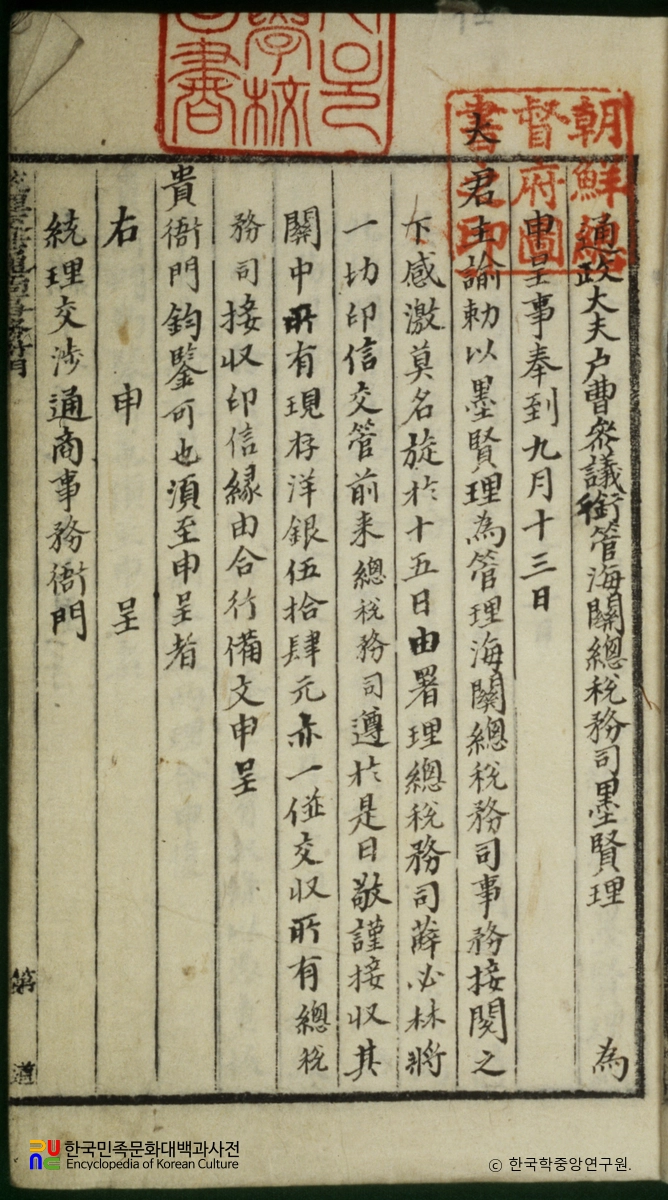 通政大夫戶曹參議銜管海關總稅務司墨賢理 為
申呈事奉到九月十三日
大君主諭勅以墨賢理為管理海關總稅務司事務接閱之
下感激莫名旋於十五日由署理總稅務司薛必林將
一切印信交管前来總稅務司遵於是日敬謹接收其
關中所有現存洋銀伍拾肆元亦一併交收所有總稅
務司接收印信緣由合行備文申呈
貴衙門鈞鑒可也須至申呈者
右 申 呈
統理交涉通商事務衙門
第 道
朝鮮總
督府圖
書之印
學校
書
한국민족문화대백과사전
Encyclopedia of Korean Culture
© 한국학중앙연구원.